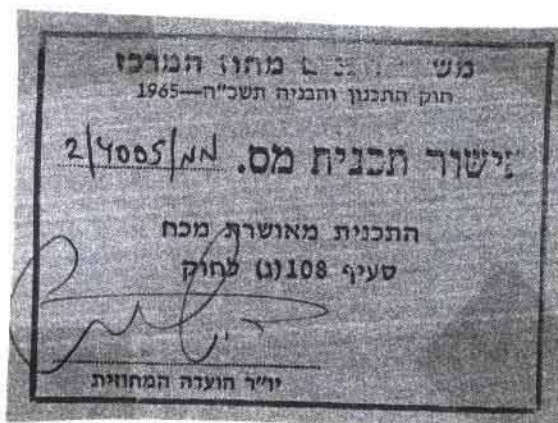 מחוז המרכז
חוק התכנון והבניה תשכ"ה—1965
אישור תכנית מס. ממ/4005/2
התכנית מאושרת מכח
סעיף 108(ג) לחוק
יו"ר הועדה המחוזית